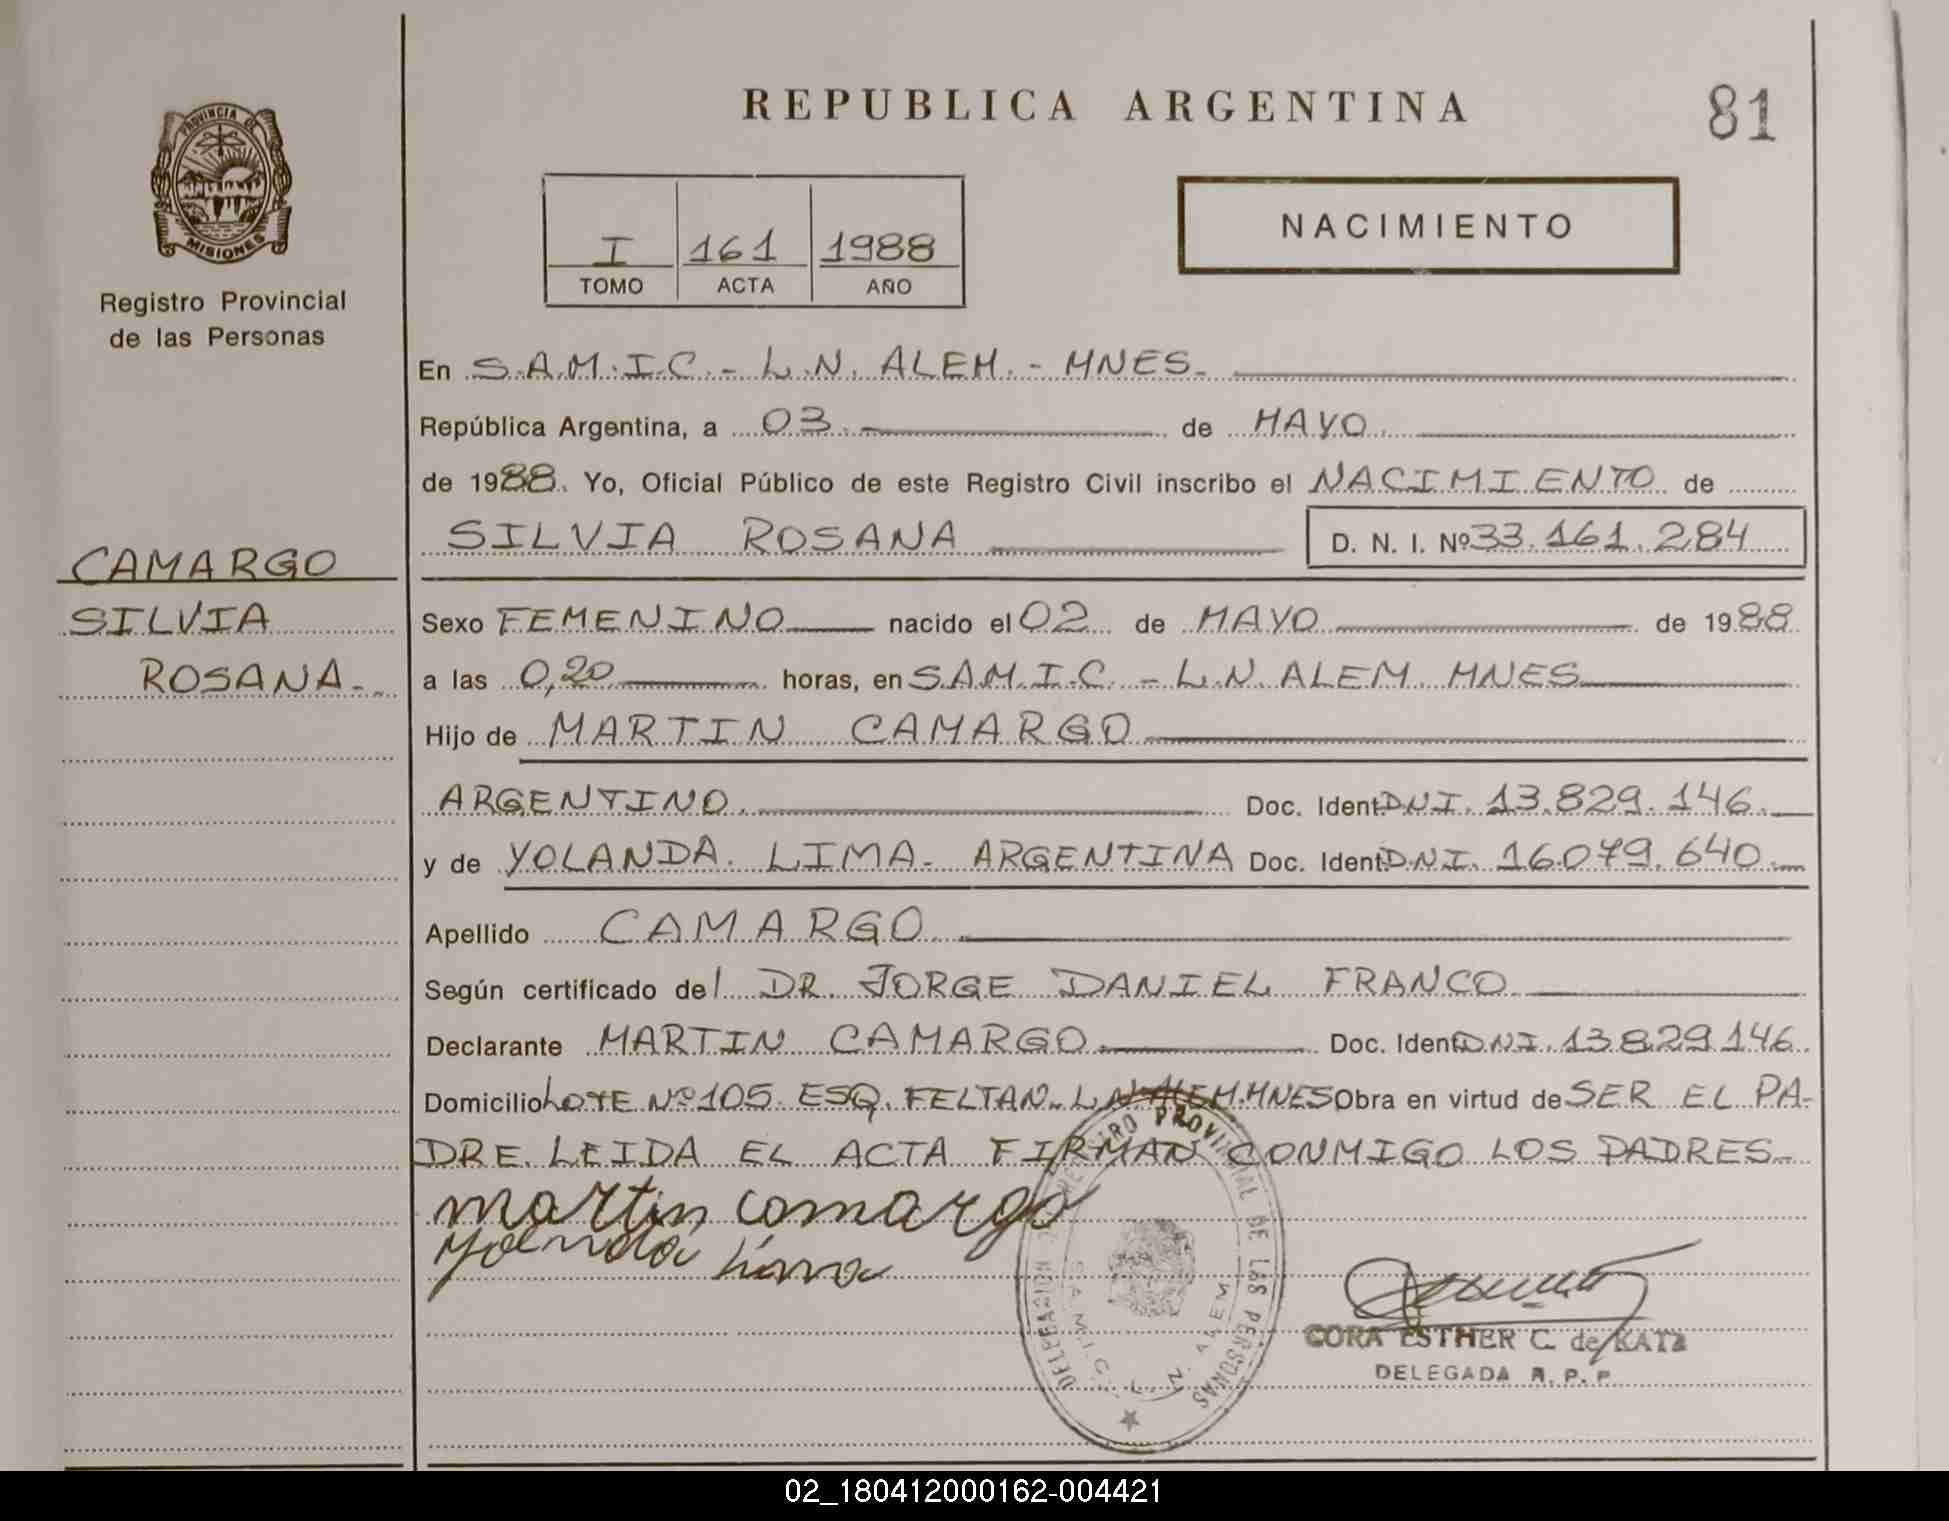 REPUBLICA ARGENTINA
81
PROVINCIA DE
MISIONES
Registro Provincial
de las Personas
I 161 1988
TOMO ACTA AÑO
NACIMIENTO
En S.A.M.I.C. - L.N. ALEM. - MNES.
República Argentina, a 03. de MAYO.
de 1988. Yo, Oficial Público de este Registro Civil inscribo el NACIMIENTO de
SILVIA ROSANA D. N. I. Nº 33.161.284
CAMARGO
SILVIA
ROSANA.-
Sexo FEMENINO nacido el 02 de MAYO de 1988
a las 0,20 horas, en S.A.M.I.C. - L.N. ALEM. MNES
Hijo de MARTIN CAMARGO
ARGENTINO. Doc. Ident. DNI. 13.829.146.
y de YOLANDA. LIMA- ARGENTINA Doc. Ident. D.N.I. 16.079.640.
Apellido CAMARGO
Según certificado del DR. JORGE DANIEL FRANCO
Declarante MARTIN CAMARGO Doc. Ident. DNI. 13829146.
Domicilio LOTE Nº 105 ESQ. FELTAN. L.N. ALEM. MNES Obra en virtud de SER EL PA-
DRE. LEIDA EL ACTA FIRMAN CONMIGO LOS PADRES-
martin camargo
Yolanda Lima
DELEGACION REGISTRO PROVINCIAL DE LAS PERSONAS
S.A.M.I.C. L. N. ALEM
CORA ESTHER C. de KATZ
DELEGADA R. P. P.
02_180412000162-004421